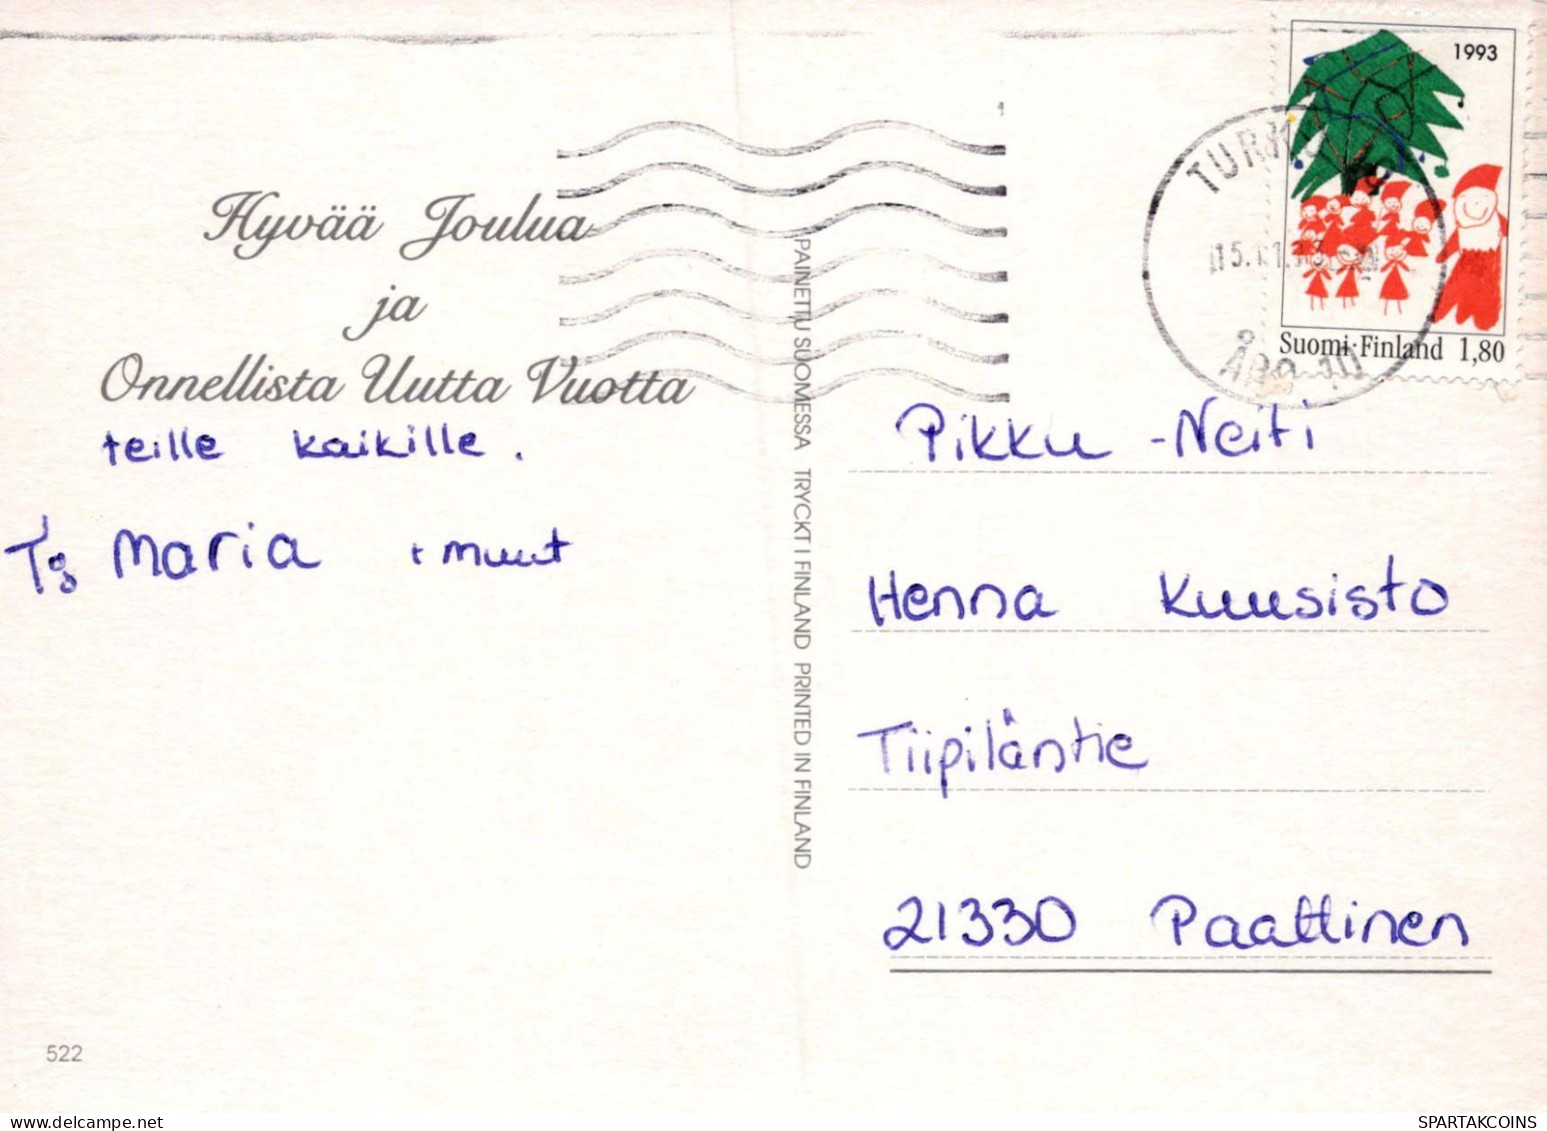 Hyvää Joulua
ja
Onnellista Uutta Vuotta
teille kaikille.
Maria + muut
522
PAINETTU SUOMESSA TRYCKT I FINLAND PRINTED IN FINLAND
1993
Suomi·Finland 1,80
TURKU
ÅBO 10
Pikku -Neiti
Henna Kuusisto
Tiipiläntie
21330 Paattinen
www.delcampe.net
SPARTAKCOINS